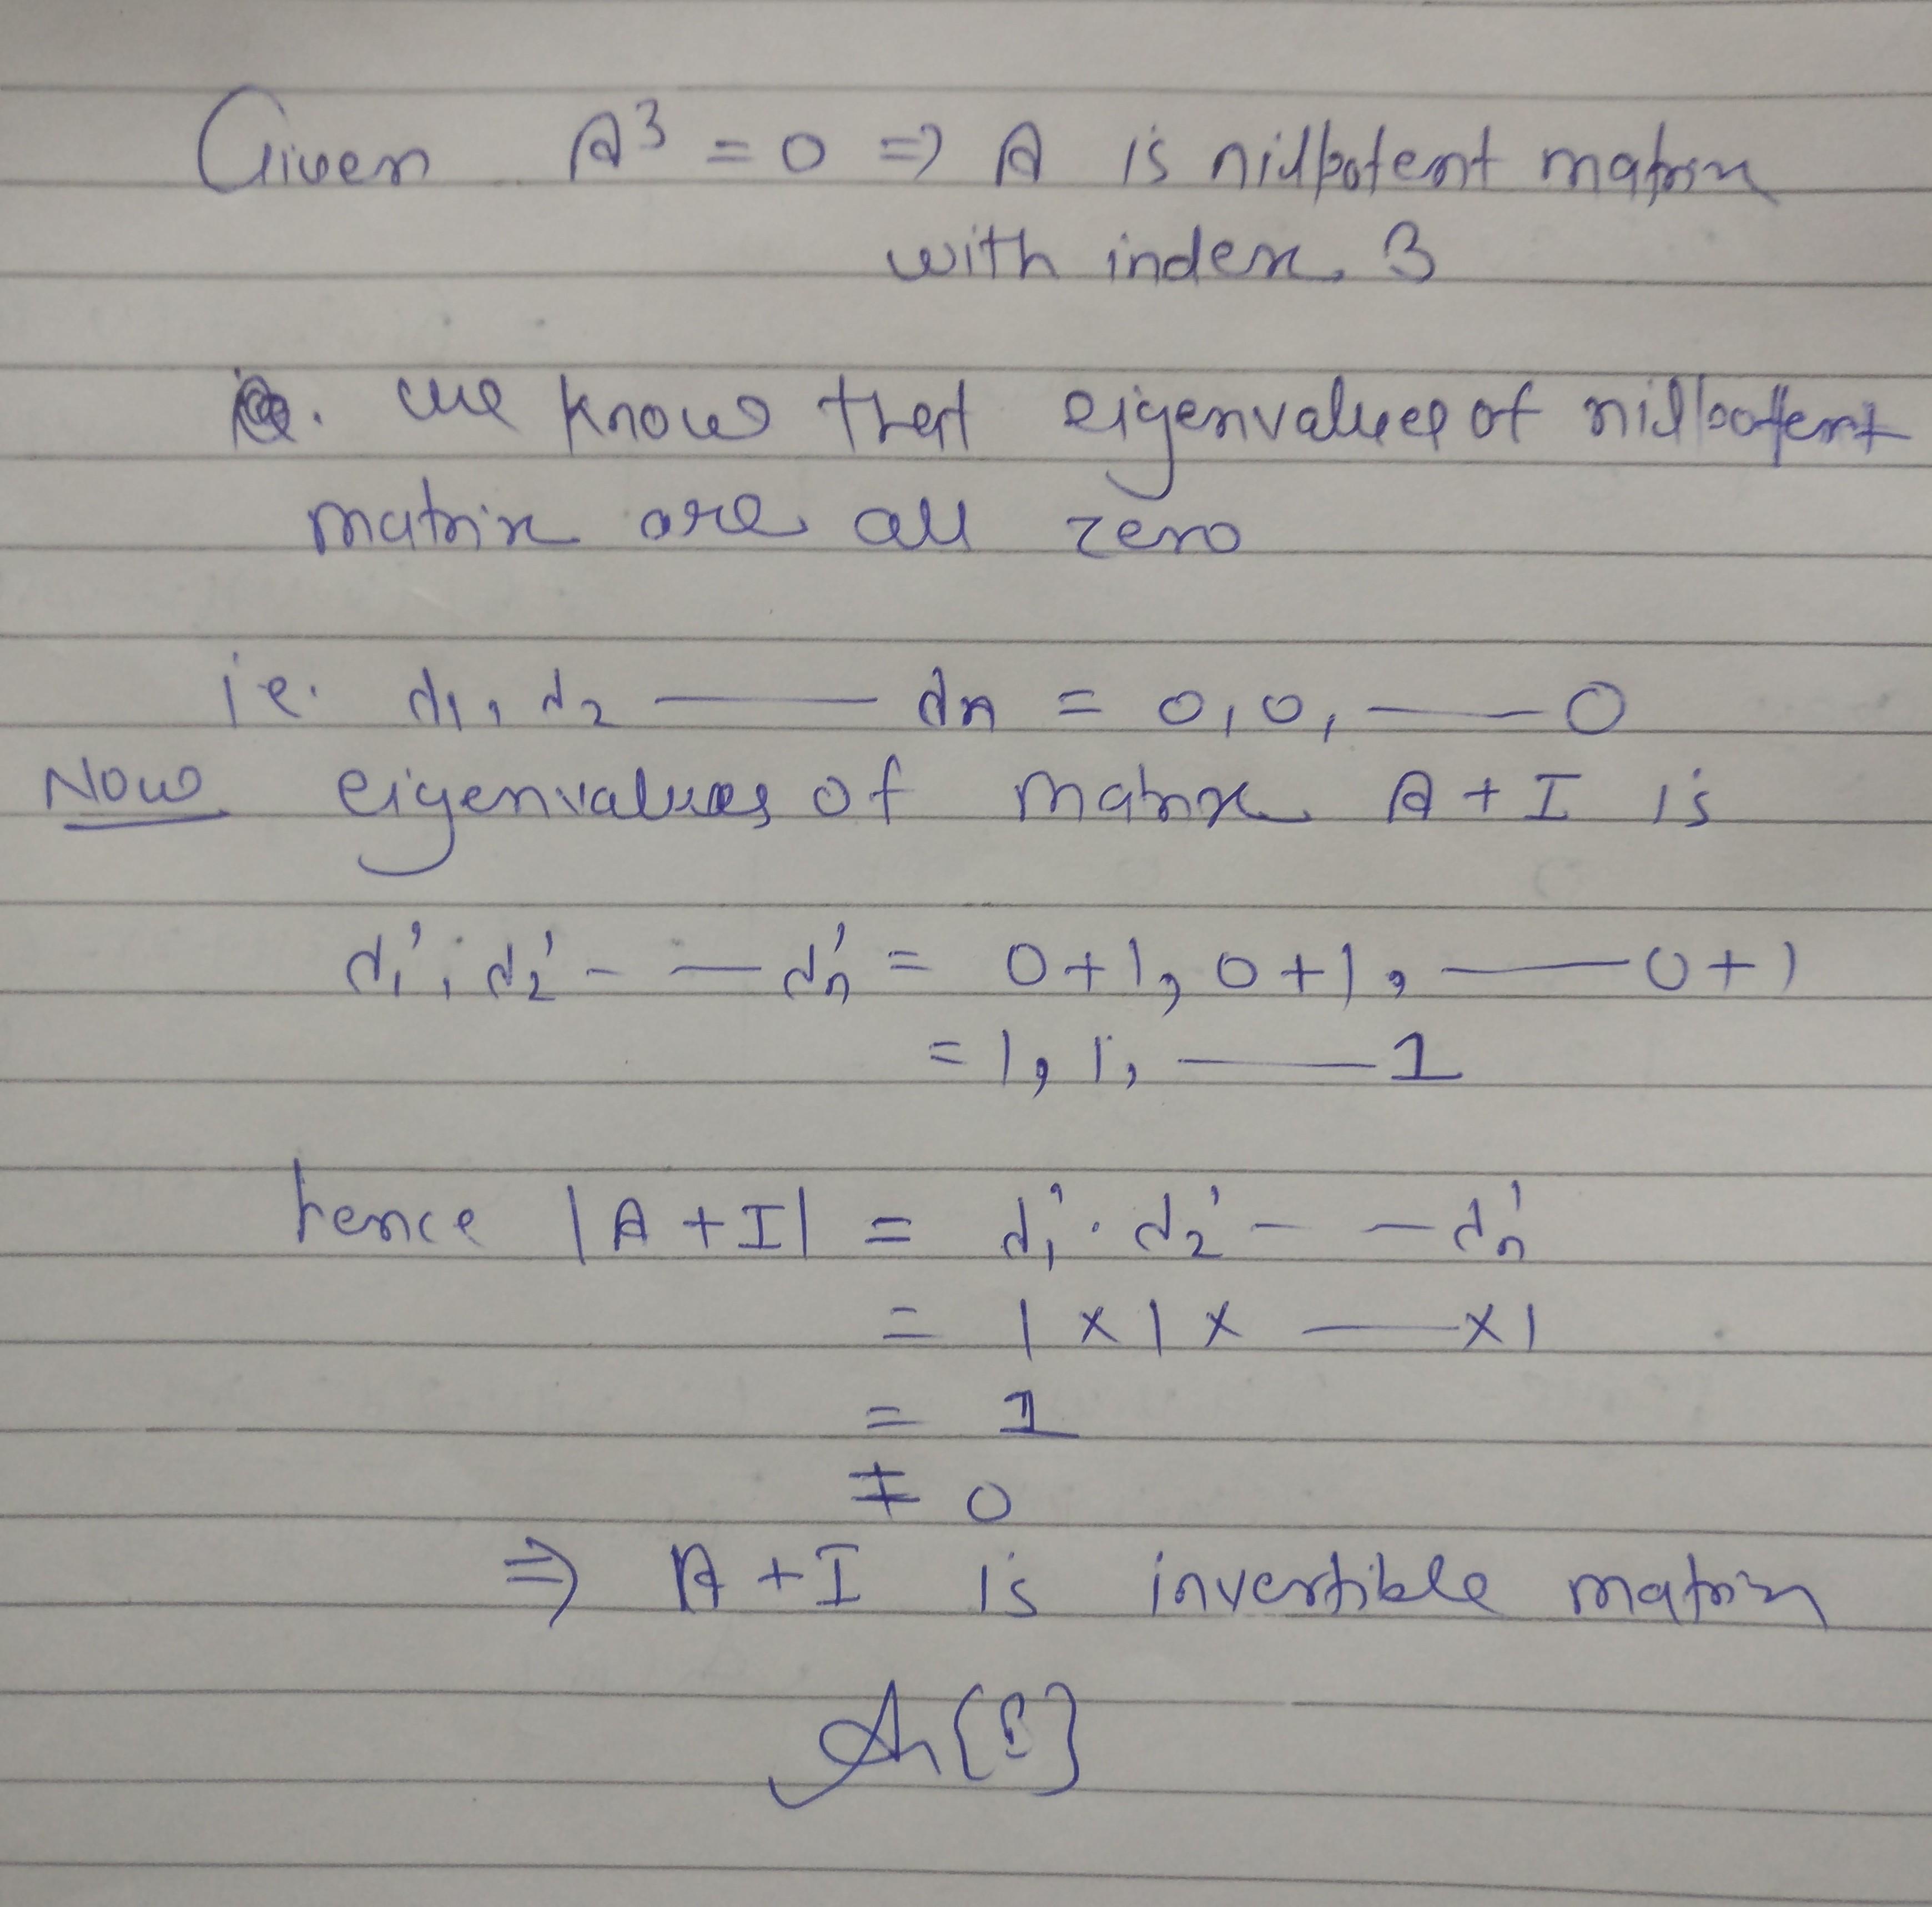 Given A³ = 0 ⇒ A is nilpotent matrix
with index 3
we know that eigenvalues of nilpotent
matrix are all zero
i.e. λ₁, λ₂ —— λn = 0, 0, —— 0
Now eigenvalues of matrix A + I is
λ₁', λ₂' - — λn' = 0+1, 0+1, —— 0+1
= 1, 1, —— 1
hence |A + I| = λ₁' . λ₂' - — λn'
= 1 × 1 × —— × 1
= 1
≠ 0
⇒ A + I is invertible matrix